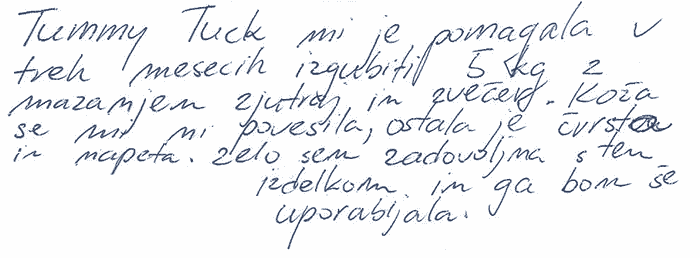 Tummy Tuck mi je pomagala v
treh mesecih izgubiti 5 kg z
mazanjem zjutraj in zvečer. Koža
se mi ni povesila, ostala je čvrsta
in napeta. Zelo sem zadovoljna s tem
izdelkom in ga bom še
uporabljala.